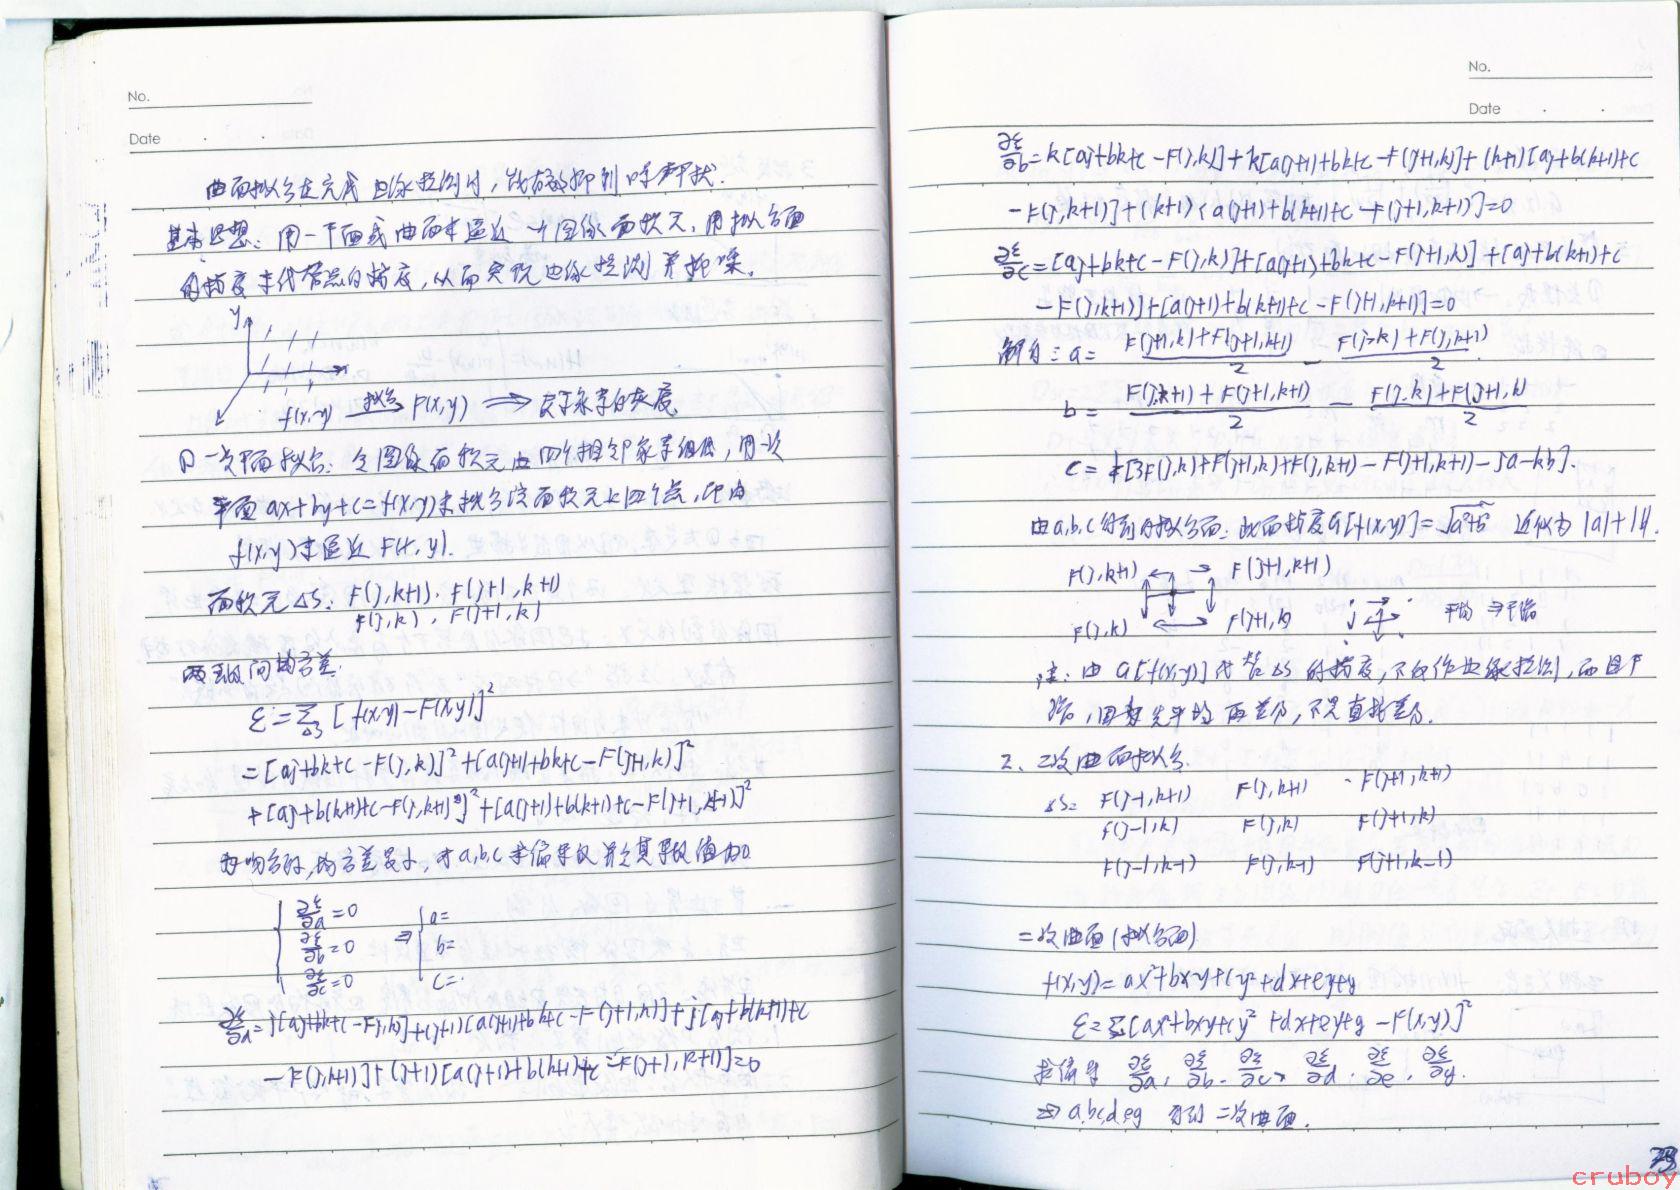 No.
Date
曲面拟合在完成边缘检测时,能有效抑制噪声干扰.
基本思想:用一平面或曲面来逼近一个图像面积元,用拟合面
的梯度来代替点的梯度,从而实现边缘检测并抑噪.
y
x
f(x,y) 拟合 F(x,y) ⇒ 原来像素的灰度
① 一次平面拟合: 令图像面积元由四个相邻像素组成,用一次
平面 ax+by+c=f(x,y)来拟合该面积元上四个点,即由
f(x,y)来逼近 F(x,y).
面积元ΔS: F(j,k+1). F(j+1,k+1)
F(j,k), F(j+1,k)
两者间均方差:
ε=Σ_ΔS [f(x,y)-F(x,y)]²
=[aj+bk+c-F(j,k)]²+[a(j+1)+bk+c-F(j+1,k)]²
+[aj+b(k+1)+c-F(j,k+1)]²+[a(j+1)+b(k+1)+c-F(j+1,k+1)]²
为吻合好,均方差最小,对a,b,c求偏导数并令其导数值为0
∂ε/∂a=0
∂ε/∂b=0 ⇒
∂ε/∂c=0
a=
b=
c=
∂ε/∂a=j[aj+bk+c-F(j,k)]+(j+1)[a(j+1)+bk+c-F(j+1,k)]+j[aj+b(k+1)+c
-F(j,k+1)]+(j+1)[a(j+1)+b(k+1)+c-F(j+1,k+1)]=0
No.
Date
∂ε/∂b=k[aj+bk+c-F(j,k)]+k[a(j+1)+bk+c-F(j+1,k)]+(k+1)[aj+b(k+1)+c
-F(j,k+1)]+(k+1)[a(j+1)+b(k+1)+c-F(j+1,k+1)]=0
∂ε/∂c=[aj+bk+c-F(j,k)]+[a(j+1)+bk+c-F(j+1,k)]+[aj+b(k+1)+c
-F(j,k+1)]+[a(j+1)+b(k+1)+c-F(j+1,k+1)]=0
a= (F(j+1,k)+F(j+1,k+1))/2 - (F(j,k)+F(j,k+1))/2
b= (F(j,k+1)+F(j+1,k+1))/2 - (F(j,k)+F(j+1,k))/2
c=¼[3F(j,k)+F(j+1,k)+F(j,k+1)-F(j+1,k+1)-ja-kb].
由a,b,c得到的拟合面: 此面梯度G[f(x,y)]=√a²+b² 近似为|a|+|b|.
F(j,k+1) F(j+1,k+1)
F(j,k) F(j+1,k) 平均 ⇒平滑
注: 由G[f(x,y)]代替ΔS的梯度,不仅作边缘检测,而且平
滑,因为先平均再差分,不是直接差分.
2. 二次曲面拟合.
ΔS= F(j-1,k+1) F(j,k+1) F(j+1,k+1)
F(j-1,k) F(j,k) F(j+1,k)
F(j-1,k-1) F(j,k-1) F(j+1,k-1)
二次曲面(拟合面)
f(x,y)=ax²+bxy+cy²+dx+ey+g
ε=Σ[ax²+bxy+cy²+dx+ey+g-F(x,y)]²
求偏导 ∂ε/∂a, ∂ε/∂b, ∂ε/∂c, ∂ε/∂d, ∂ε/∂e, ∂ε/∂g.
⇒ a,b,c,d,e,g 得到二次曲面.
cruboy